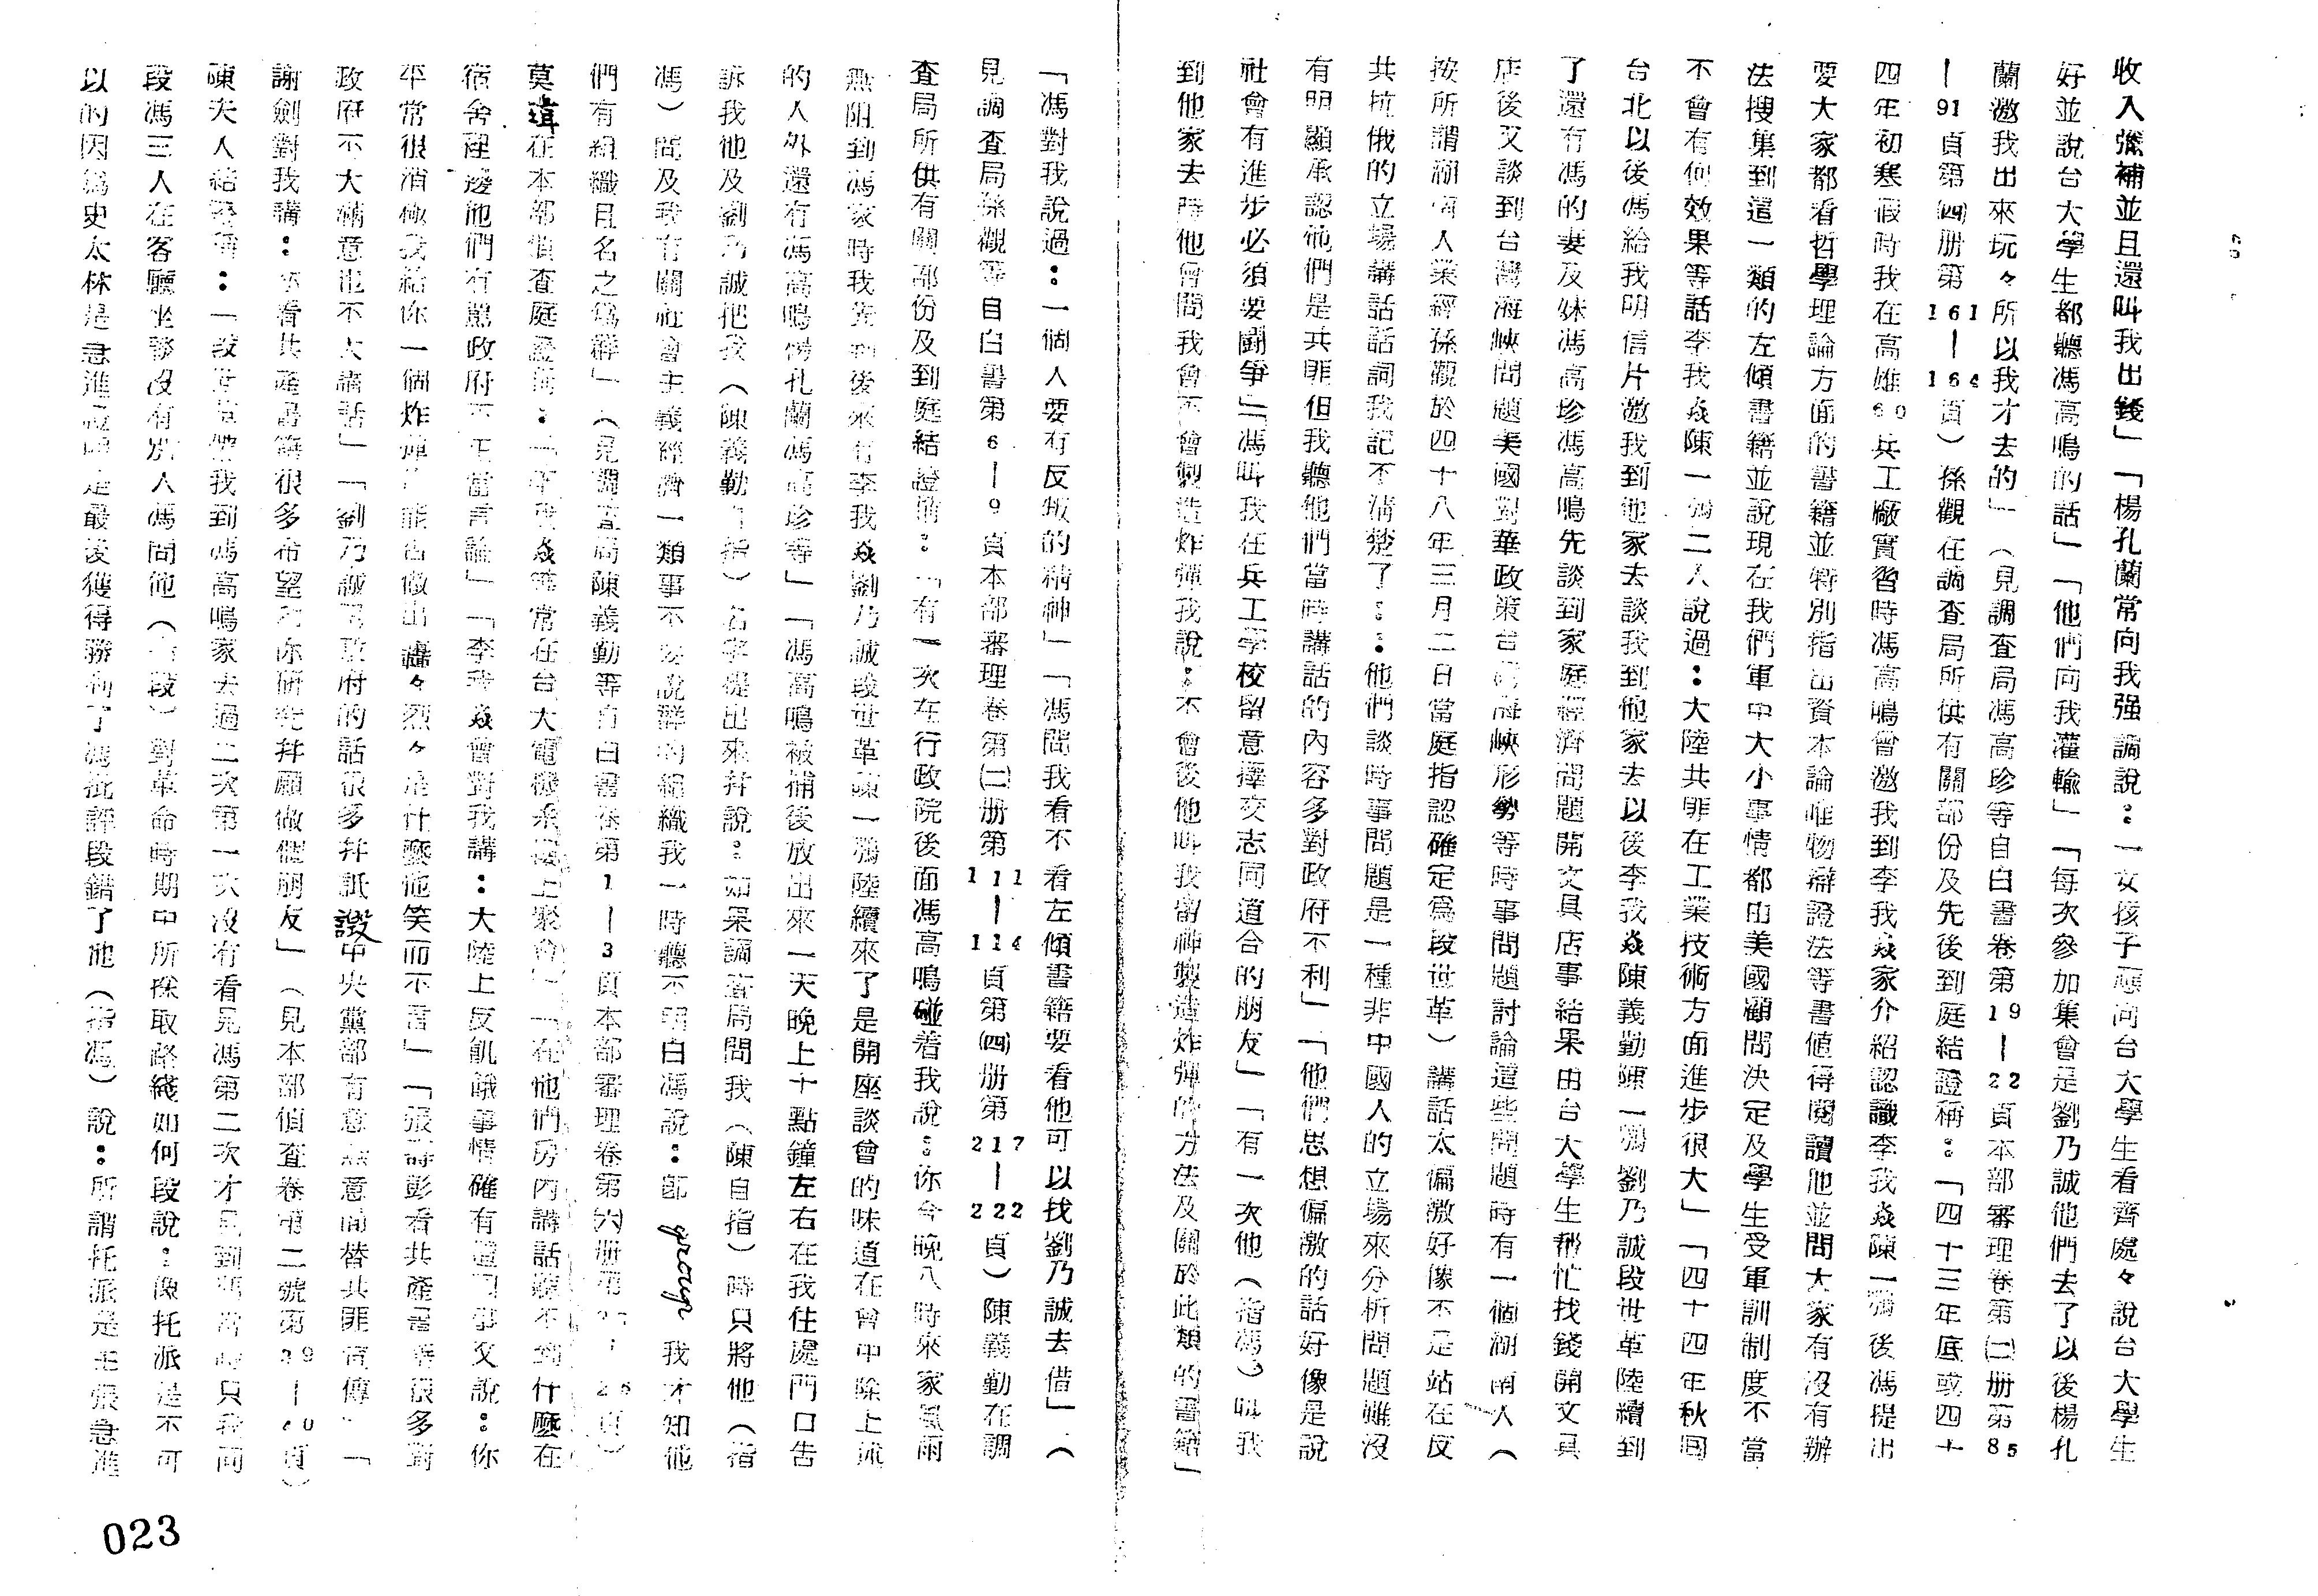 收入彌補並且還叫我出錢」「楊孔蘭常向我强調說：一女孩子應向台大學生看齊處々說台大學生
好並說台大學生都聽馮高鳴的話」「他們向我灌輸」「每次參加集會是劉乃誠他們去了以後楊孔
蘭邀我出來玩々所以我才去的」（見調查局馮高珍等自白書卷第19—22頁本部審理卷第㈡册第85
—91頁第㈣册第161—164頁）孫觀在調查局所供有關部份及先後到庭結證稱：「四十三年底或四十
四年初寒假時我在高雄60兵工廠實習時馮高鳴曾邀我到李我焱家介紹認識李我焱陳一鶚後馮提出
要大家都看哲學理論方面的書籍並特別指出資本論唯物辯證法等書值得閱讀他並問大家有沒有辦
法搜集到這一類的左傾書籍並說現在我們軍中大小事情都由美國顧問決定及學生受軍訓制度不當
不會有何效果等話李我焱陳一鶚二人說過：大陸共匪在工業技術方面進步很大」「四十四年秋回
台北以後馮給我明信片邀我到他家去談我到他家去以後李我焱陳義勤陳一鶚劉乃誠段世革陸續到
了還有馮的妻及妹馮高珍馮高鳴先談到家庭經濟問題開文具店事結果由台大學生幫忙找錢開文具
店後又談到台灣海峽問題美國對華政策台灣海峽形勢等時事問題討論這些問題時有一個湖南人（
按所謂湖南人業經孫觀於四十八年三月二日當庭指認確定爲段世革）講話太偏激好像不是站在反
共抗俄的立場講話話詞我記不清楚了：：他們談時事問題是一種非中國人的立場來分析問題雖沒
有明顯承認他們是共匪但我聽他們當時講話的內容多對政府不利」「他們思想偏激的話好像是說
社會有進步必須要鬪爭」「馮叫我在兵工學校留意擇交志同道合的朋友」「有一次他（指馮）叫我
到他家去時他曾問我會不會製造炸彈我說：不會後他叫我留神製造炸彈的方法及關於此類的書籍」
「馮對我說過：一個人要有反叛的精神」「馮問我看不看左傾書籍要看他可以找劉乃誠去借」（
見調查局孫觀等自白書第6—9頁本部審理卷第㈡册第111—114頁第㈣册第217—222頁）陳義勤在調
查局所供有關部份及到庭結證稱：「有一次在行政院後面馮高鳴碰着我說：你今晚八時來家風雨
無阻到馮家時我先到後來有李我焱劉乃誠段世革陳一鶚陸續來了是開座談會的味道在會中除上述
的人外還有馮高鳴楊孔蘭馮高珍等」「馮高鳴被捕後放出來一天晚上十點鐘左右在我住處門口告
訴我他及劉乃誠把我（陳義勤自指）名字提出來幷說：如果調查局問我（陳自指）時只將他（指
馮）問及我有關社會主義經濟一類事不要說群的組織我一時聽不明白馮說：卽group我才知他
們有組織且名之爲群」（見調查局陳義勤等自白書卷第1—3頁本部審理卷第六册第　26頁）
莫瑋在本部偵查庭證稱：「李我焱等常在台大電機系樓上聚會」「在他們房內講話聽不到什麼在
宿舍裡邊他們有罵政府不正當言論」「李我焱曾對我講：大陸上反飢餓事情確有這回事又說：你
平常很消極我給你一個炸彈你能否做出轟々烈々是什麼他笑而不言」「張壽彭看共產書籍很多對
政府不大滿意也不大講話」「劉乃誠罵政府的話很多幷詆譭中央黨部有意無意間替共匪宣傳」「
謝劍對我講：不看共產書籍很多希望和你研究幷願做個朋友」（見本部偵查卷第二號第39—40頁）
陳夫人結證稱：「段世革他我到馮高鳴家去過二次第一次沒有看見馮第二次才見到馮當時只我同
段馮三人在客廳坐談沒有別人馮問他（指段）對革命時期中所採取路綫如何段說：像托派是不可
以的因爲史太林是急進
最後獲得勝利了馮批評段錯了他（指馮）說：所謂托派是主張急進
023